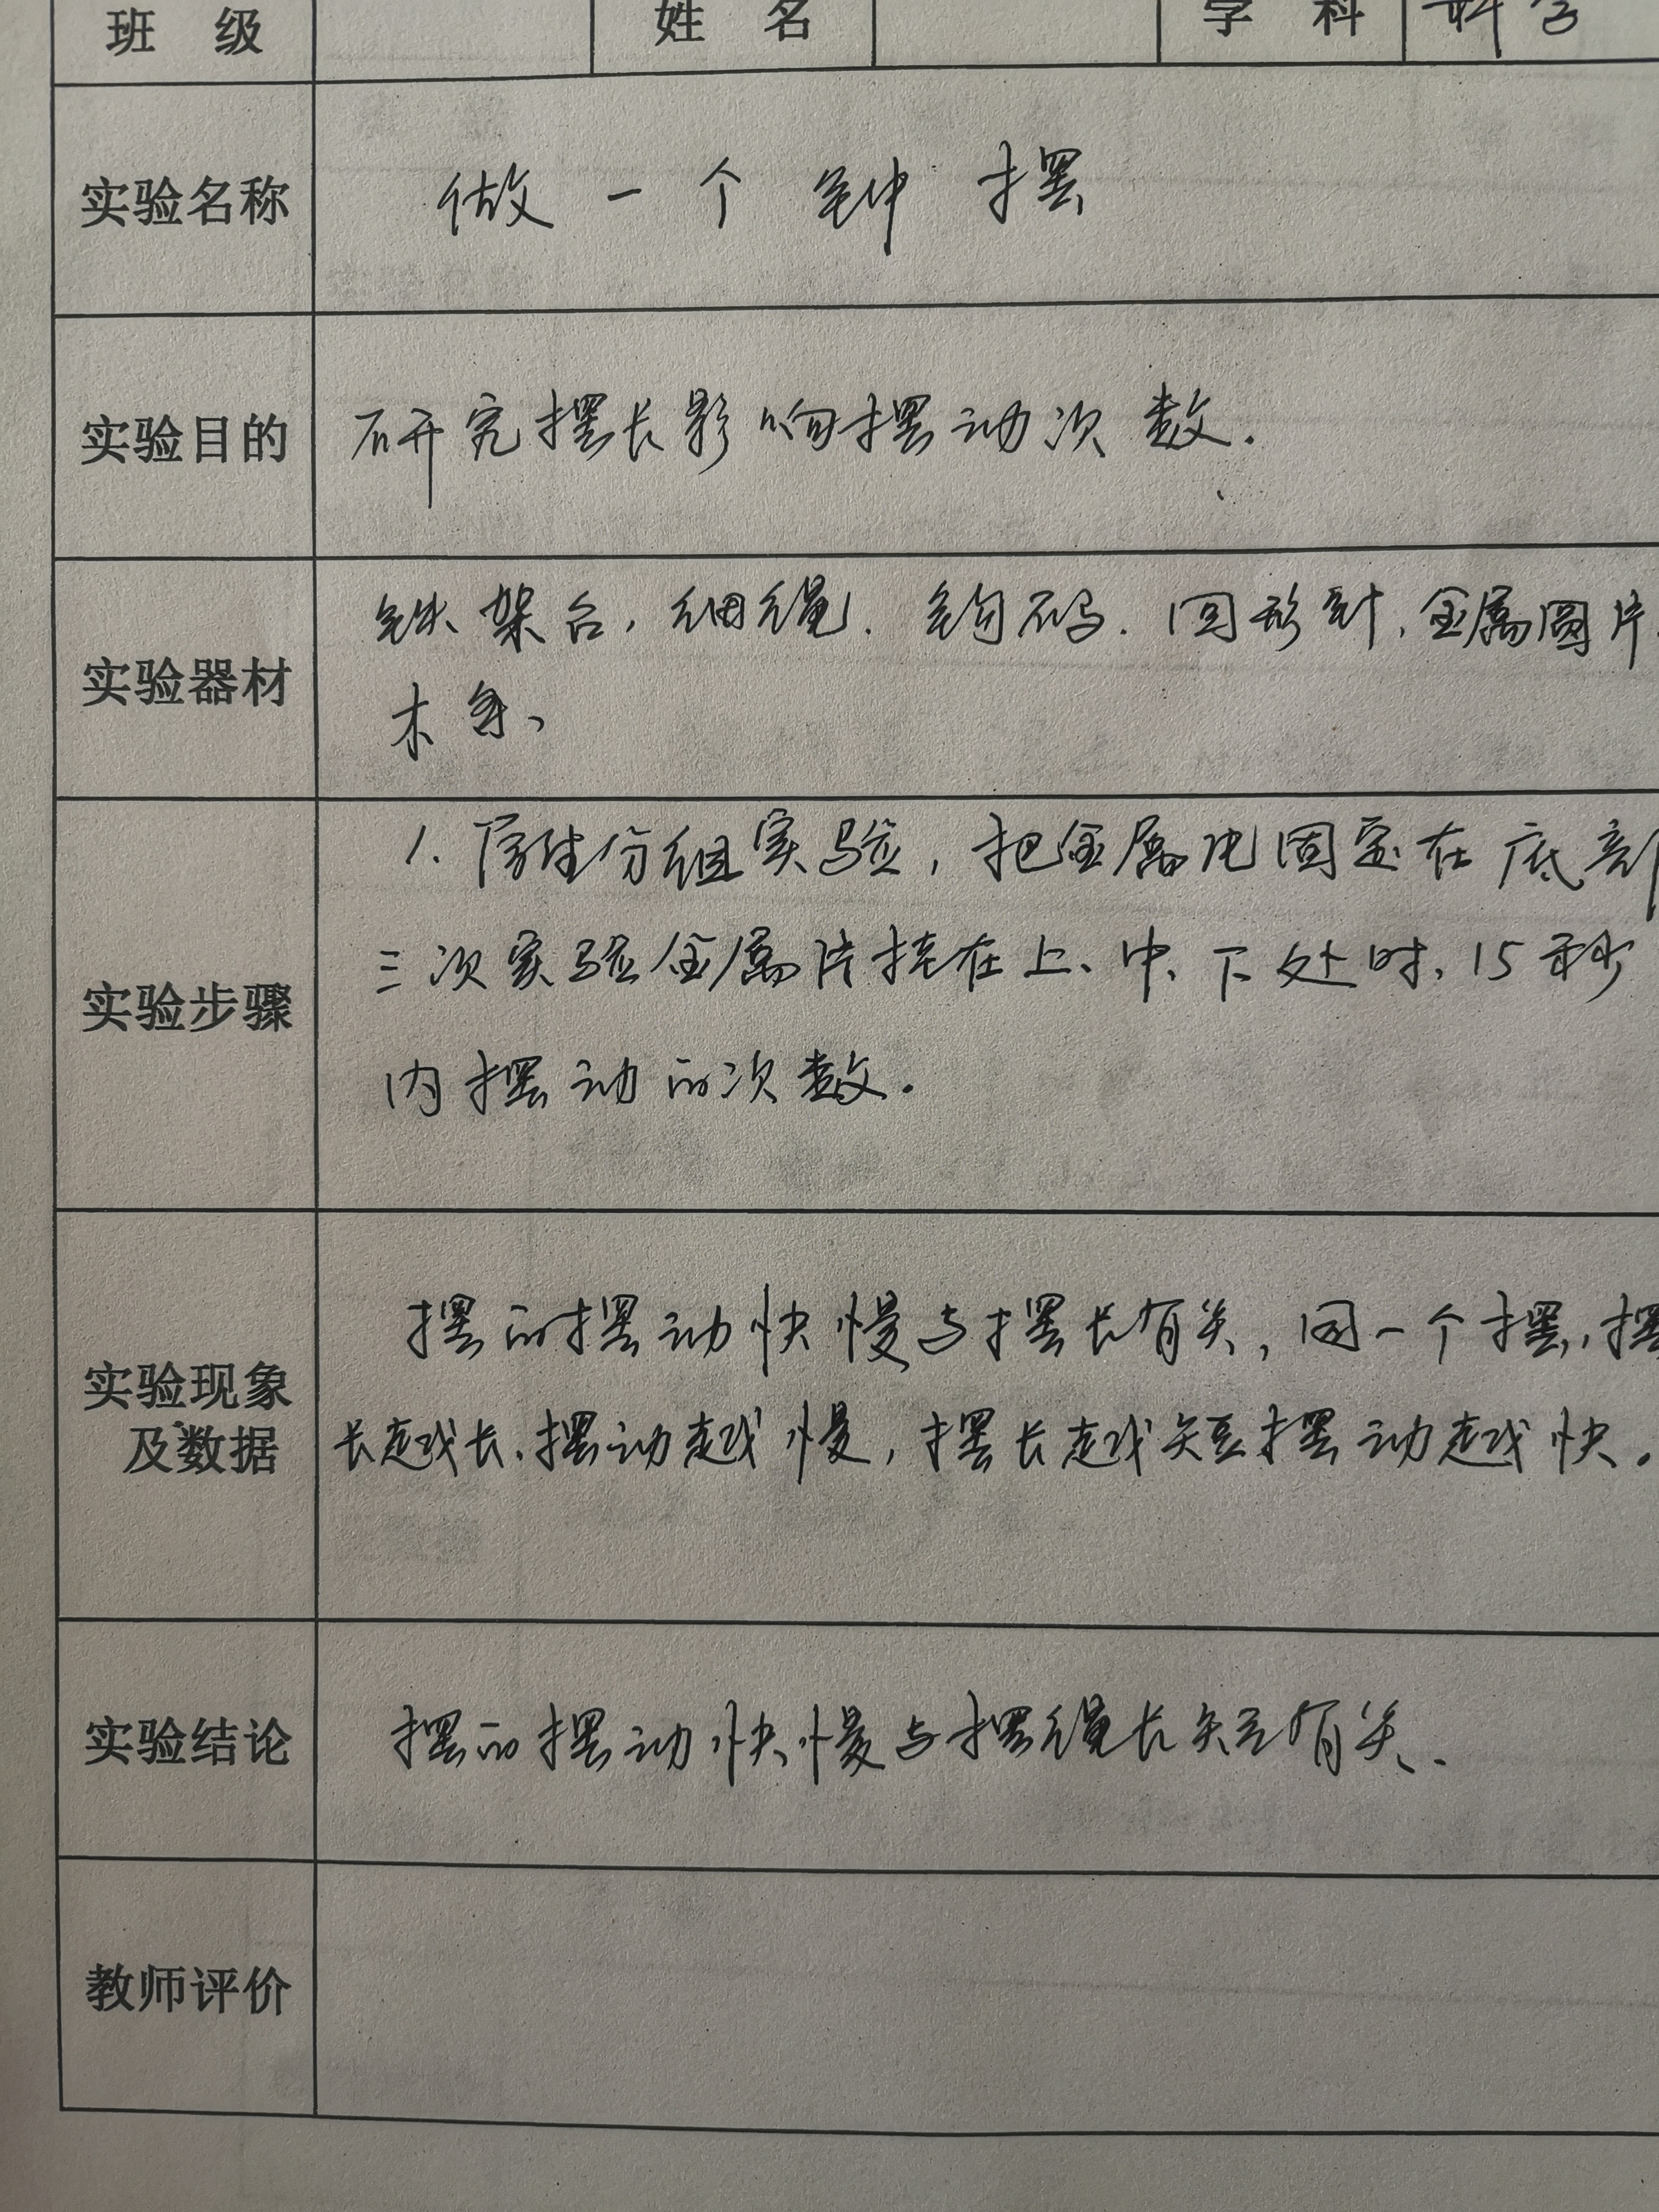 班 级 姓 名 学 科 科学
实验名称 做一个钟摆
实验目的 研究摆长影响摆动次数.
实验器材 铁架台, 细绳. 钩码. 回形针, 金属圆片.
木条、
实验步骤 1. 学生分组实验, 把金属片固定在底部
三次实验金属片挂在上、中、下处时, 15秒
内摆动的次数.
实验现象及数据 摆的摆动快慢与摆长有关, 同一个摆, 摆
长越长, 摆动越慢, 摆长越短摆动越快.
实验结论 摆的摆动快慢与摆绳长短有关.
教师评价